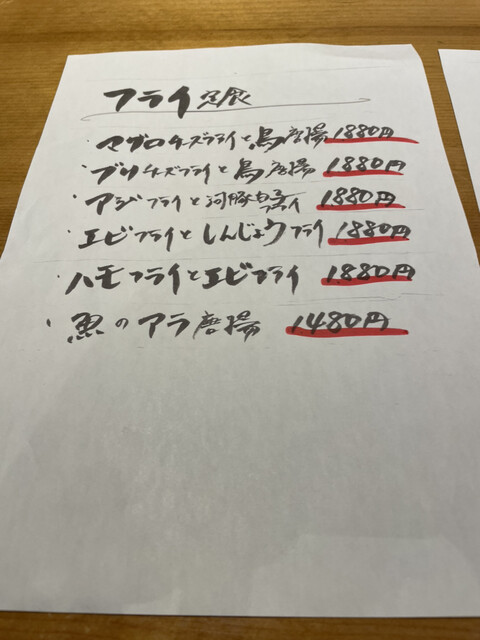 フライ定食
・マグロチーズフライと鳥唐揚 1880円
・ブリチーズフライと鳥唐揚 1880円
・アジフライと河豚白子フライ 1880円
・エビフライとしんじょうフライ 1880円
・ハモフライとエビフライ 1880円
・魚のアラ唐揚 1480円